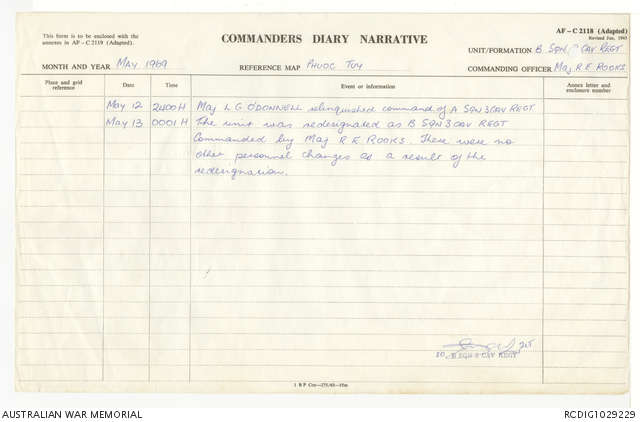 This form is to be enclosed with the
annexes in AF – C 2119 (Adapted).
COMMANDERS DIARY NARRATIVE
AF – C 2118 (Adapted)
Revised Jun, 1965
UNIT/FORMATION B SQN 3 CAV REGT
MONTH AND YEAR MAY 1969
REFERENCE MAP PHUOC TUY
COMMANDING OFFICER Maj R.E. ROOKS
Place and grid
reference
Date
Time
Event or information
Annex letter and
enclosure number
May 12 2400H Maj L G O'DONNELL relinquished command of A SQN 3 CAV REGT
May 13 0001 H The unit was redesignated as B SQN 3 CAV REGT
Commanded by Maj R E ROOKS. There were no
other personnel changes as a result of the
redesignation.
B SQN 3 CAV REGT
AUSTRALIAN WAR MEMORIAL
RCDIG1029229